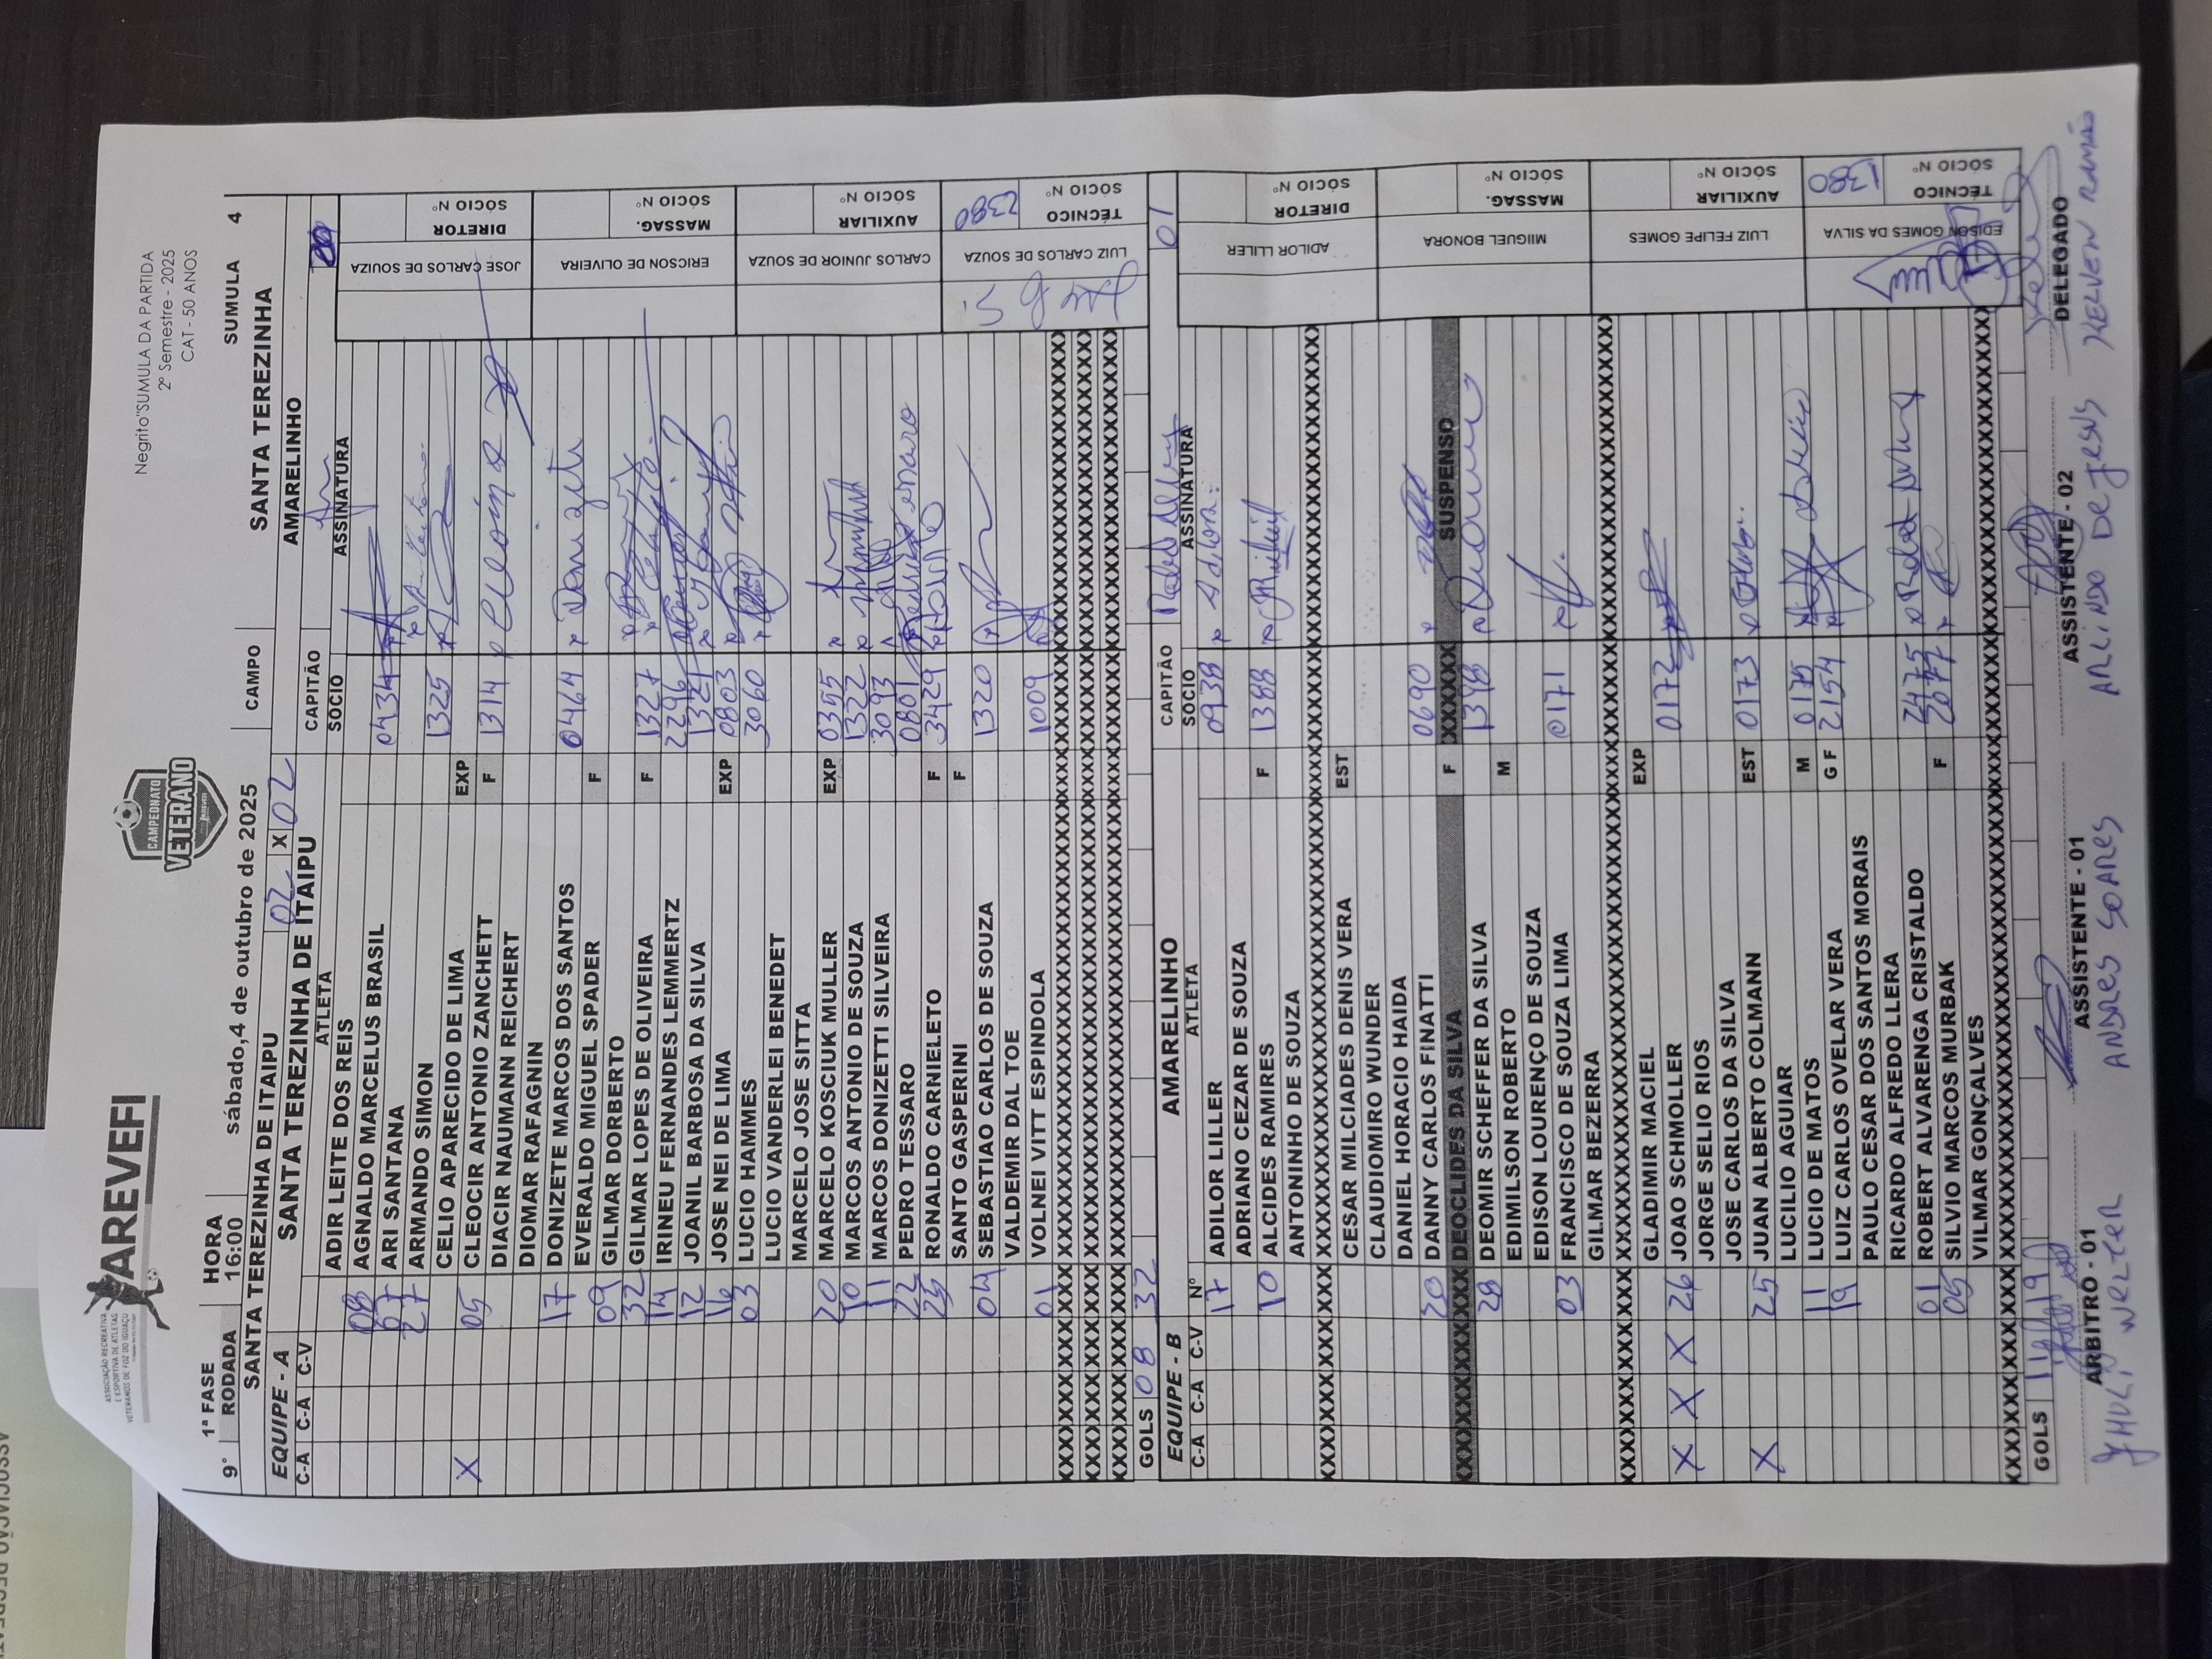 AREVEFI
ASSOCIAÇÃO RECREATIVA
E ESPORTIVA DE ATLETAS
VETERANOS DE FOZ DO IGUAÇU
CAMPEONATO
VETERANO
Negrito"SUMULA DA PARTIDA
2º Semestre - 2025
CAT - 50 ANOS
9ª 1ª FASE HORA
RODADA 16:00 sábado,4 de outubro de 2025 CAMPO SANTA TEREZINHA SUMULA 4
SANTA TEREZINHA DE ITAIPU 02 X 02 AMARELINHO
EQUIPE - A SANTA TEREZINHA DE ITAIPU CAPITÃO
C-A C-A C-V ATLETA SOCIO ASSINATURA
ADIR LEITE DOS REIS
08 AGNALDO MARCELUS BRASIL
07 ARI SANTANA 0434
27 ARMANDO SIMON 1325
CELIO APARECIDO DE LIMA EXP
X 05 CLEOCIR ANTONIO ZANCHETT F 1314
DIACIR NAUMANN REICHERT
DIOMAR RAFAGNIN
17 DONIZETE MARCOS DOS SANTOS 0464 x Donizete
EVERALDO MIGUEL SPADER F
09 GILMAR DORBERTO
32 GILMAR LOPES DE OLIVEIRA F 1327
14 IRINEU FERNANDES LEMMERTZ 2296
12 JOANIL BARBOSA DA SILVA 1321
16 JOSE NEI DE LIMA EXP 0803
03 LUCIO HAMMES 3060
LUCIO VANDERLEI BENEDET
MARCELO JOSE SITTA
20 MARCELO KOSCIUK MULLER EXP 0355
10 MARCOS ANTONIO DE SOUZA 1322
11 MARCOS DONIZETTI SILVEIRA 3093
22 PEDRO TESSARO 0801
23 RONALDO CARNIELETO F 3429
SANTO GASPERINI F
04 SEBASTIAO CARLOS DE SOUZA 1320
VALDEMIR DAL TOE
01 VOLNEI VITT ESPINDOLA 1009
GOLS 08 32
JOSE CARLOS DE SOUZA DIRETOR SÓCIO Nº
ERICSON DE OLIVEIRA MASSAG. SÓCIO Nº
CARLOS JUNIOR DE SOUZA AUXILIAR SÓCIO Nº
LUIZ CARLOS DE SOUZA TÉCNICO SÓCIO Nº 2380
EQUIPE - B AMARELINHO CAPITÃO 01
C-A C-A C-V Nº ATLETA SOCIO ASSINATURA
17 ADILOR LILLER 0938 x Adilor
ADRIANO CEZAR DE SOUZA
10 ALCIDES RAMIRES F 1388
ANTONINHO DE SOUZA
CESAR MILCIADES DENIS VERA EST
CLAUDIOMIRO WUNDER
DANIEL HORACIO HAIDA
20 DANNY CARLOS FINATTI 0690
DEOCLIDES DA SILVA F XXXXXX SUSPENSO
28 DEOMIR SCHEFFER DA SILVA 1398
EDIMILSON ROBERTO M
EDISON LOURENÇO DE SOUZA
03 FRANCISCO DE SOUZA LIMA 0171
GILMAR BEZERRA
GLADIMIR MACIEL EXP
X X X 26 JOAO SCHMOLLER 0172
JORGE SELIO RIOS
JOSE CARLOS DA SILVA
X 25 JUAN ALBERTO COLMANN EST 0173
LUCILIO AGUIAR
11 LUCIO DE MATOS M 0175
19 LUIZ CARLOS OVELAR VERA G F 2154
PAULO CESAR DOS SANTOS MORAIS
RICARDO ALFREDO LLERA
01 ROBERT ALVARENGA CRISTALDO 2475
05 SILVIO MARCOS MURBAK F 2077
VILMAR GONÇALVES
GOLS 11 19
ADILOR LLILER DIRETOR SÓCIO Nº
MIIGUEL BONORA MASSAG. SÓCIO Nº
LUIZ FELIPE GOMES AUXILIAR SÓCIO Nº
EDISON GOMES DA SILVA TÉCNICO SÓCIO Nº 1380
ARBITRO - 01 ASSISTENTE - 01 ASSISTENTE - 02 DELEGADO
WELTER ANDRES SOARES ARLINDO DE JESUS KELVEN RAMÃO